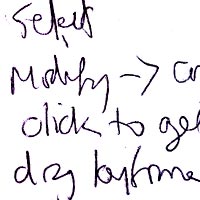 Select
Modify →
click to get
drg keyframe